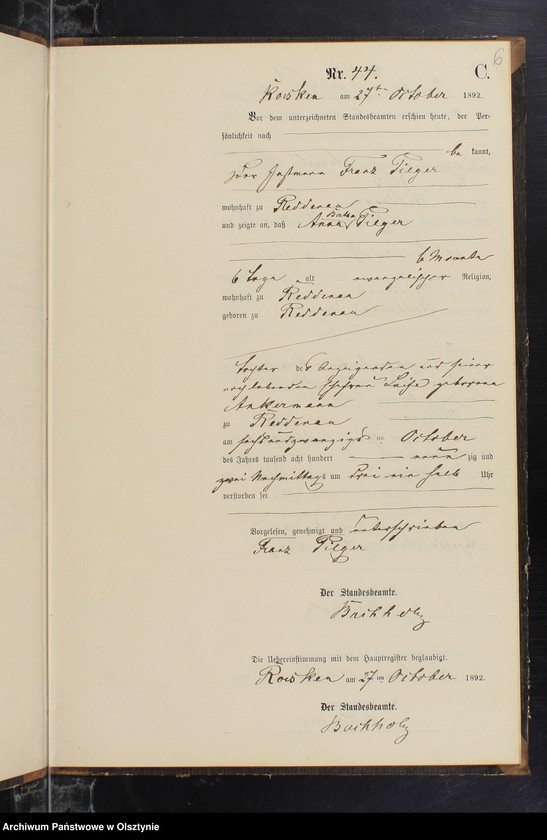 6
Nr. 44. C.
Rosken am 27ten October 1892.
Vor dem unterzeichneten Standesbeamten erschien heute, der Per-
sönlichkeit nach
be kannt,
der Instmann Franz Pilger
wohnhaft zu Reddenau
und zeigte an, daß Anna Pilger
6 Monate
6 Tage alt evangelischer Religion,
wohnhaft zu Reddenau
geboren zu Reddenau
Tochter des Anzeigenden und seiner
noch lebenden Ehefrau Luise geborene
Ankermann
zu Reddenau
am sechsundzwanzigsten October
des Jahres tausend acht hundert neun zig und
zwei Nachmittags um drei ein halb Uhr
verstorben sei
Vorgelesen, genehmigt und unterschrieben
Franz Pilger
Der Standesbeamte.
Buchholz
Die Uebereinstimmung mit dem Hauptregister beglaubigt.
Rosken am 27ten October 1892.
Der Standesbeamte.
Buchholz
Archiwum Państwowe w Olsztynie